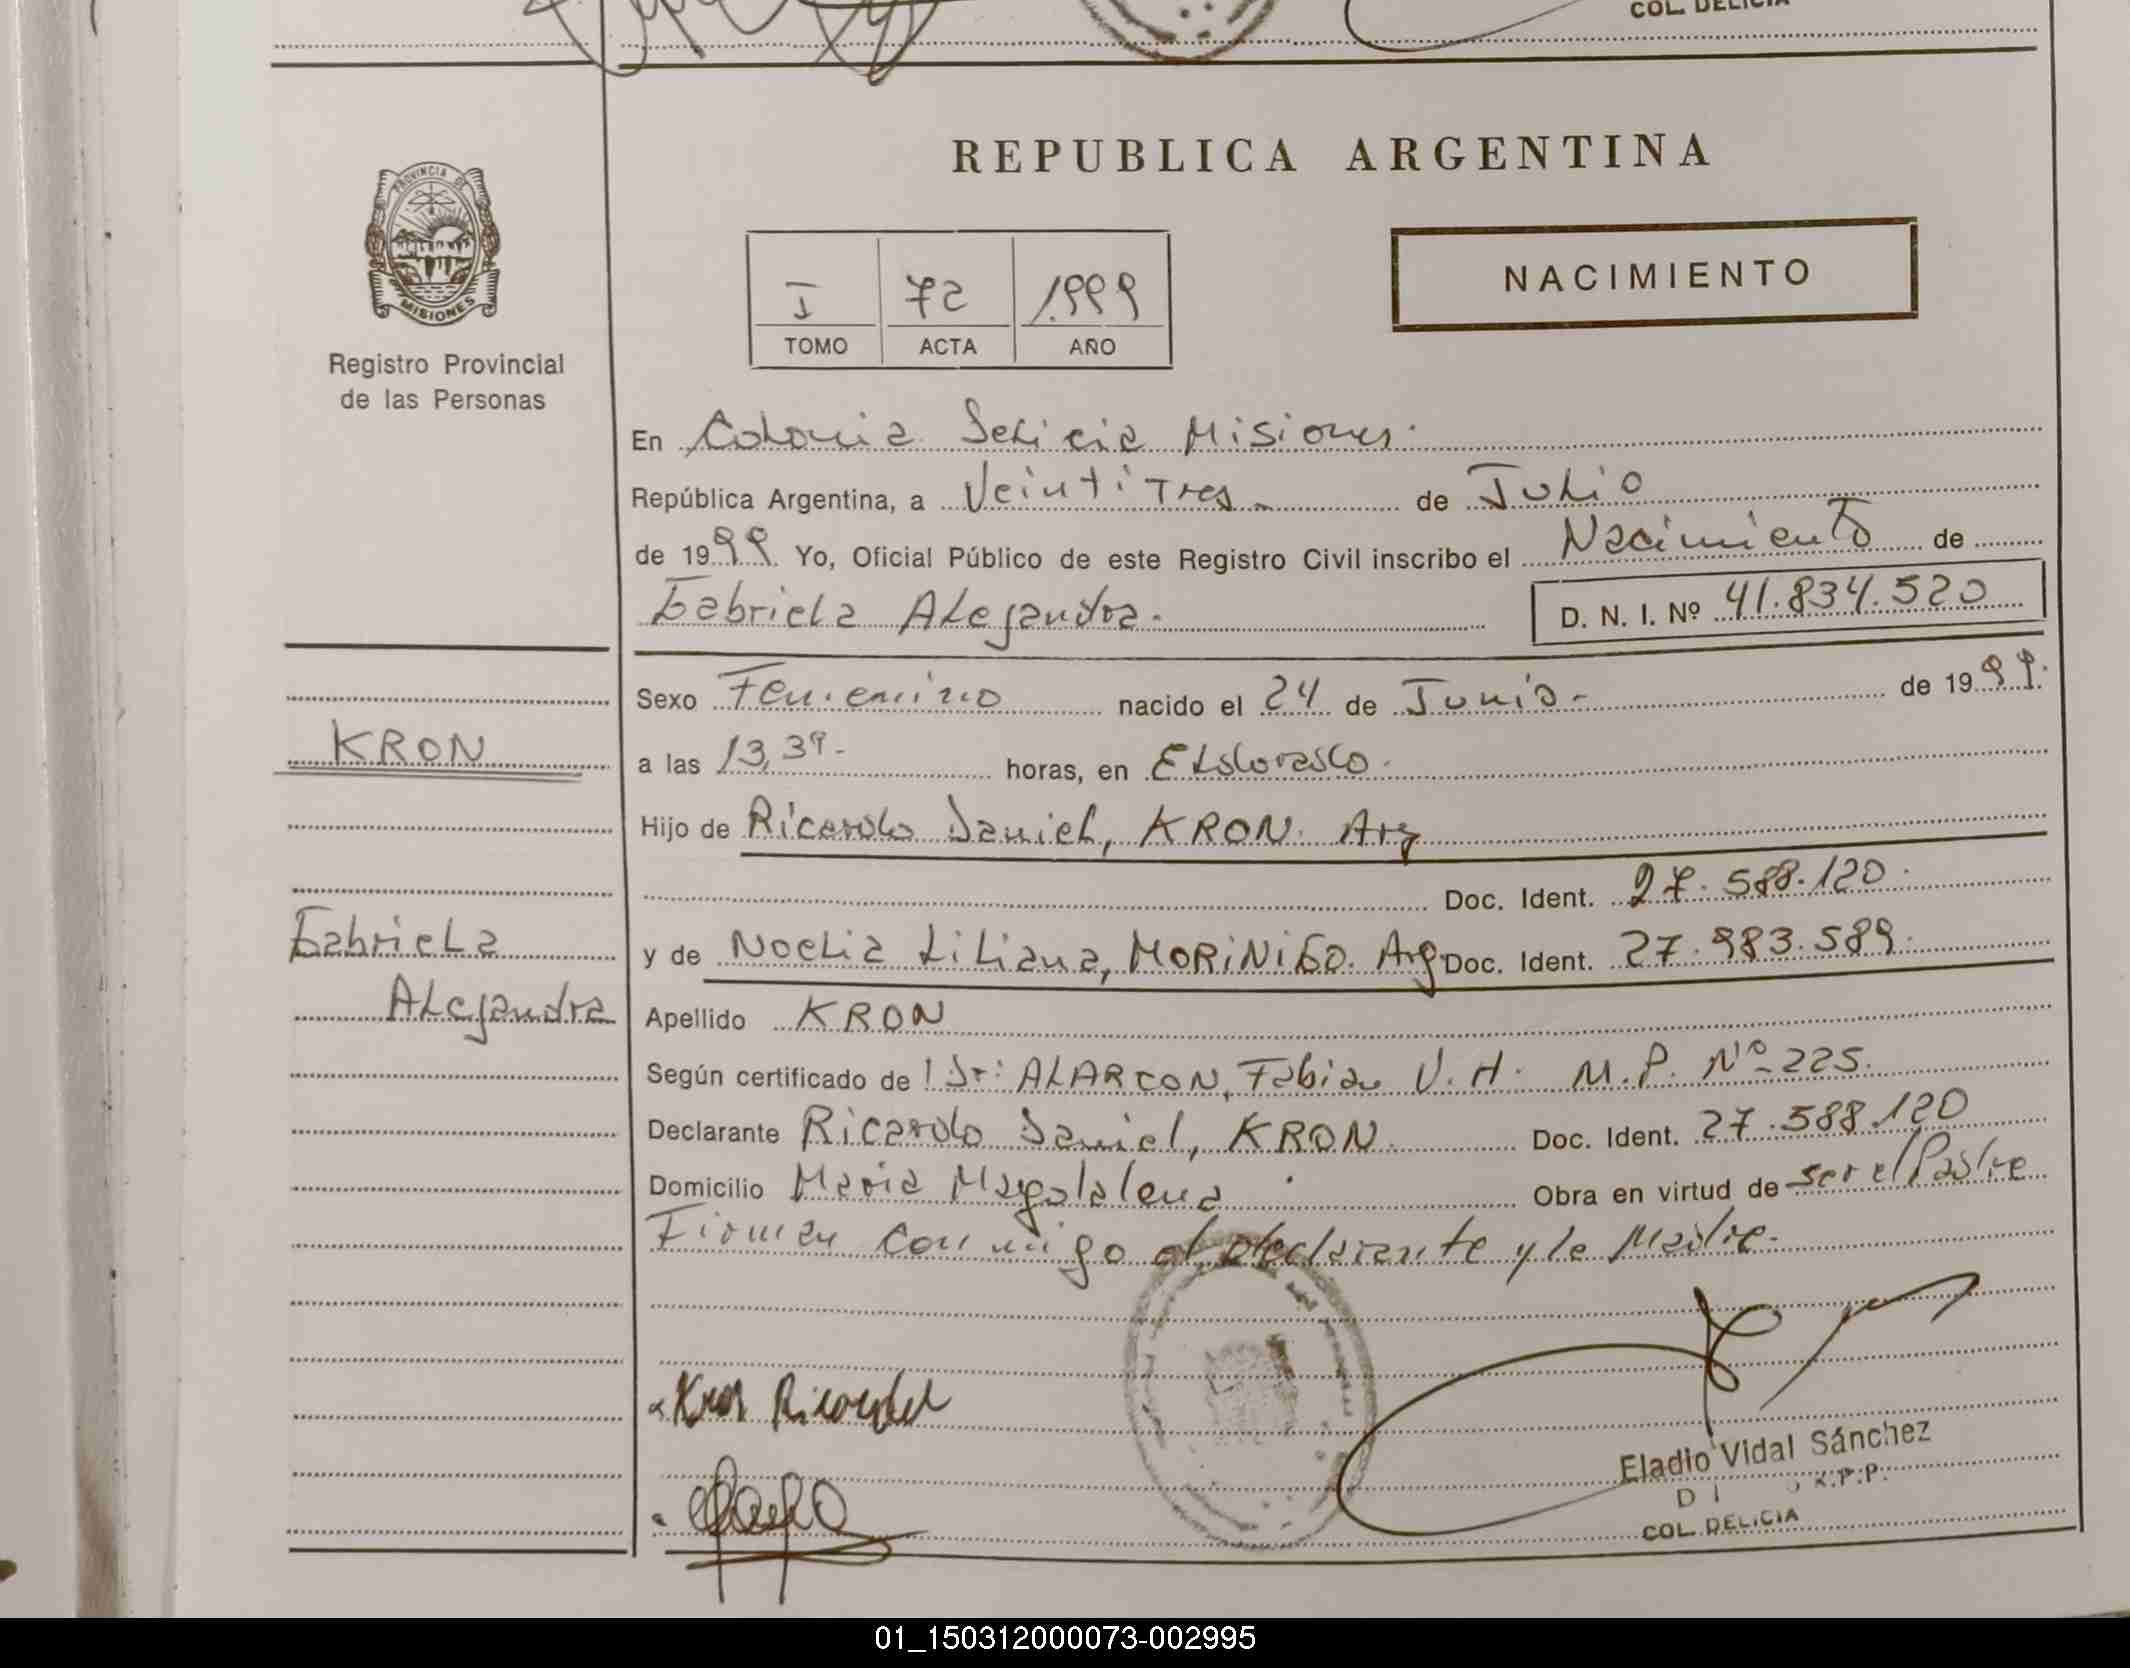 COL. DELICIA
PROVINCIA DE
MISIONES
Registro Provincial
de las Personas
REPUBLICA ARGENTINA
I 72 1.999
TOMO ACTA AÑO
NACIMIENTO
En Colonia Delicia Misiones.
República Argentina, a Veinti Tres de Julio
de 1999 Yo, Oficial Público de este Registro Civil inscribo el Nacimiento de
Gabriela Alejandra.
D. N. I. Nº 41.834.520
Sexo Femenino nacido el 24 de Junio.- de 1999.
KRON
a las 13,39.- horas, en Eldorado.
Hijo de Ricardo Daniel, KRON. Arg
Doc. Ident. 27.588.120.
Gabriela
y de Noelia Liliana, MORINIGO. Arg Doc. Ident. 27.983.589.
Alejandra
Apellido KRON
Según certificado de l Dr: ALARCON, Fabian V. H. M.P. Nº 225.
Declarante Ricardo Daniel, KRON. Doc. Ident. 27.588.120
Domicilio Maria Magdalena. Obra en virtud de ser el Padre
Firman conmigo el declarante y la Madre.
Kron Ricardo
Eladio Vidal Sánchez
R.P.P.
COL. DELICIA
01_150312000073-002995